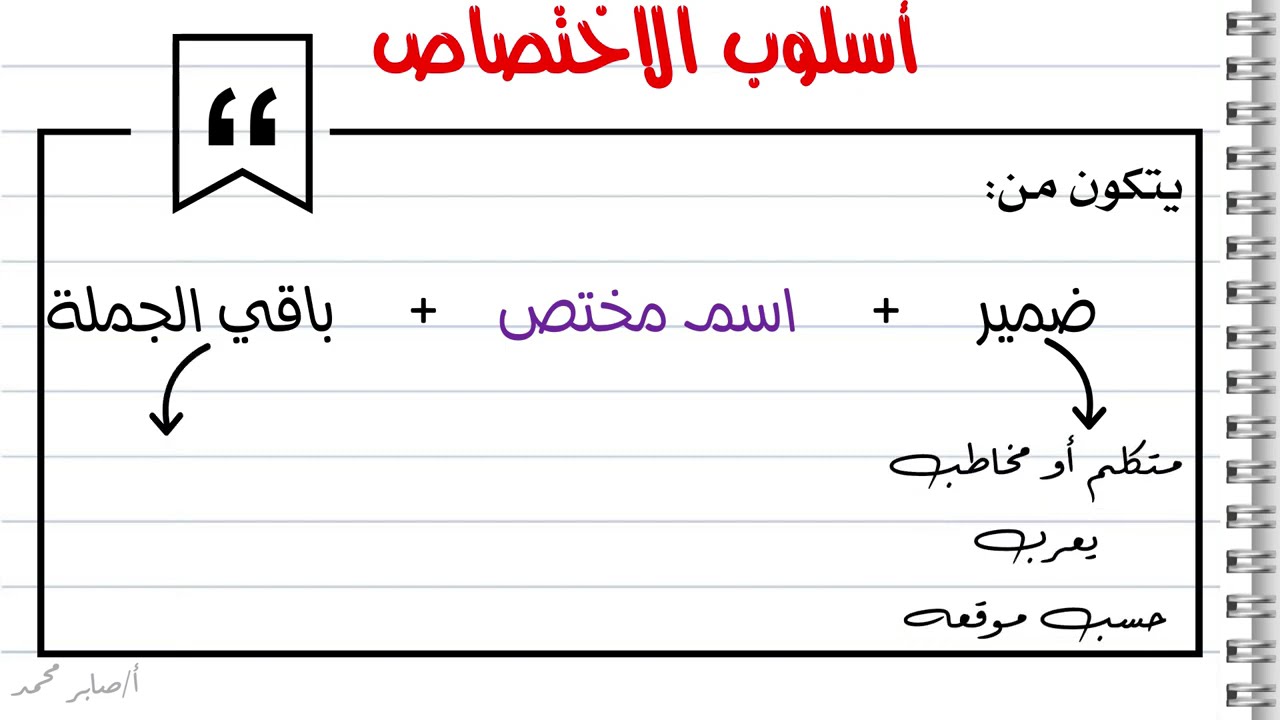 أسلوب الاختصاص
يتكون من:
ضمير + اسم مختص + باقي الجملة
متكلم أو مخاطب
يعرب
حسب موقعه
أ/صابر محمد